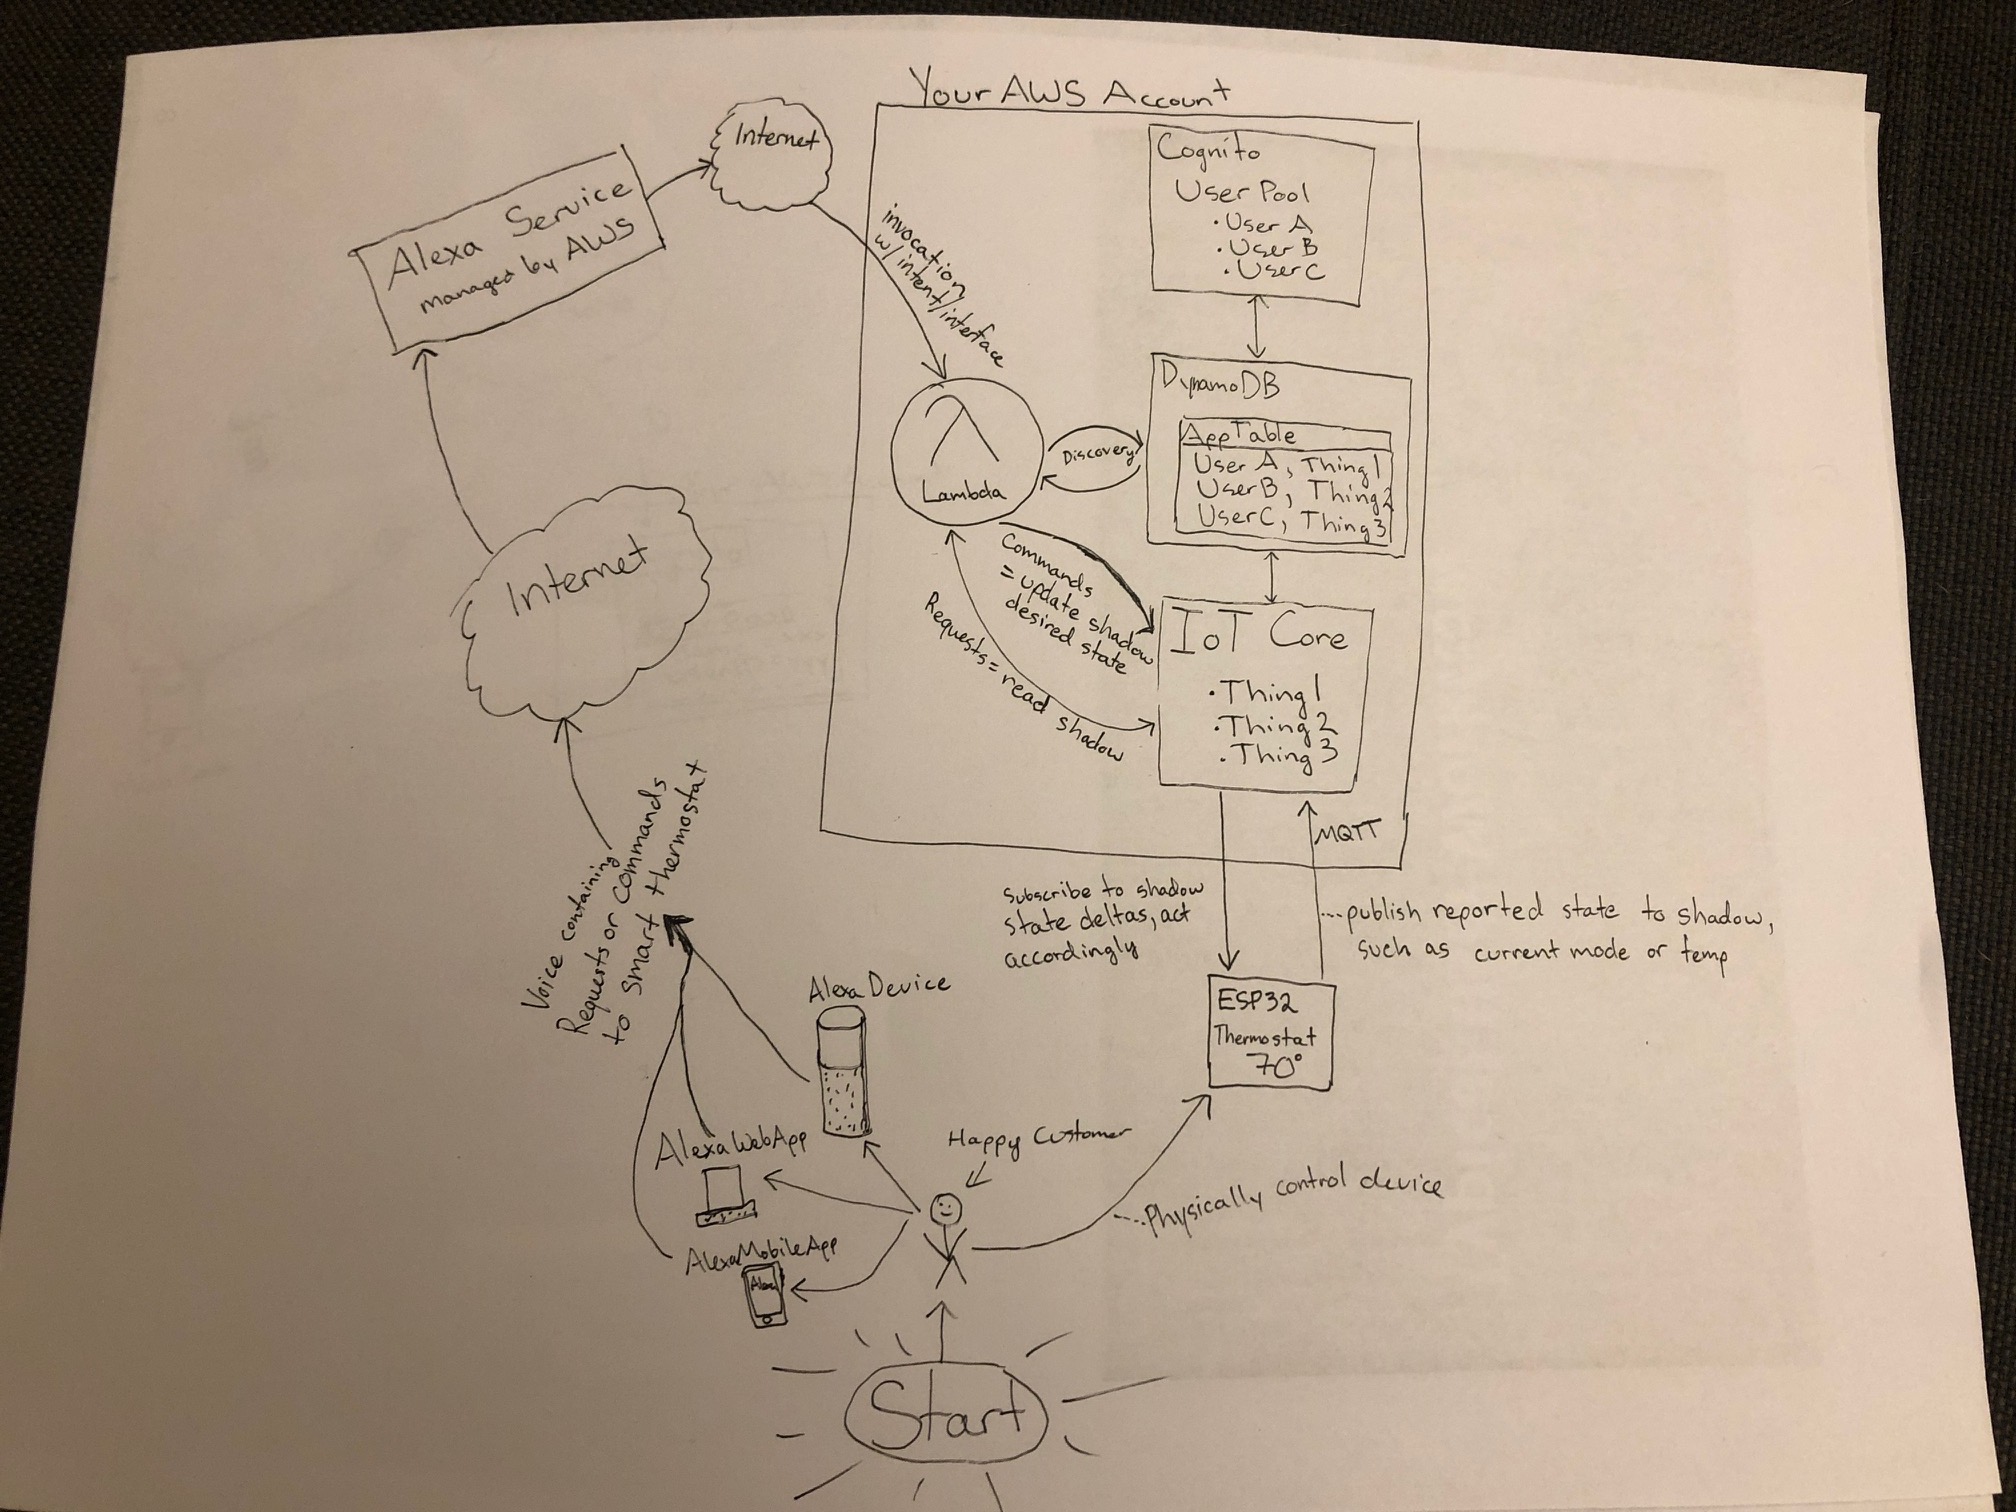 Your AWS Account
Internet
Alexa Service
managed by AWS
invocation
w/ intent/interface
Cognito
User Pool
• User A
• User B
• User C
DynamoDB
AppTable
User A, Thing1
User B, Thing2
User C, Thing3
Discovery
Lambda
Commands
= update shadow
desired state
Requests = read shadow
IoT Core
• Thing1
• Thing2
• Thing3
Internet
MQTT
Voice containing
Requests or Commands
to Smart thermostat
Subscribe to shadow
state deltas, act
accordingly
...publish reported state to shadow,
such as current mode or temp
ESP32
Thermostat
70°
Alexa Device
Happy Customer
Alexa WebApp
...Physically control device
Alexa Mobile App
Alexa
Start